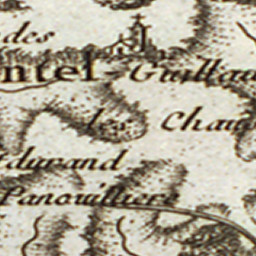 des
ntel-Guillau
les Chau
durand
Panouilliere